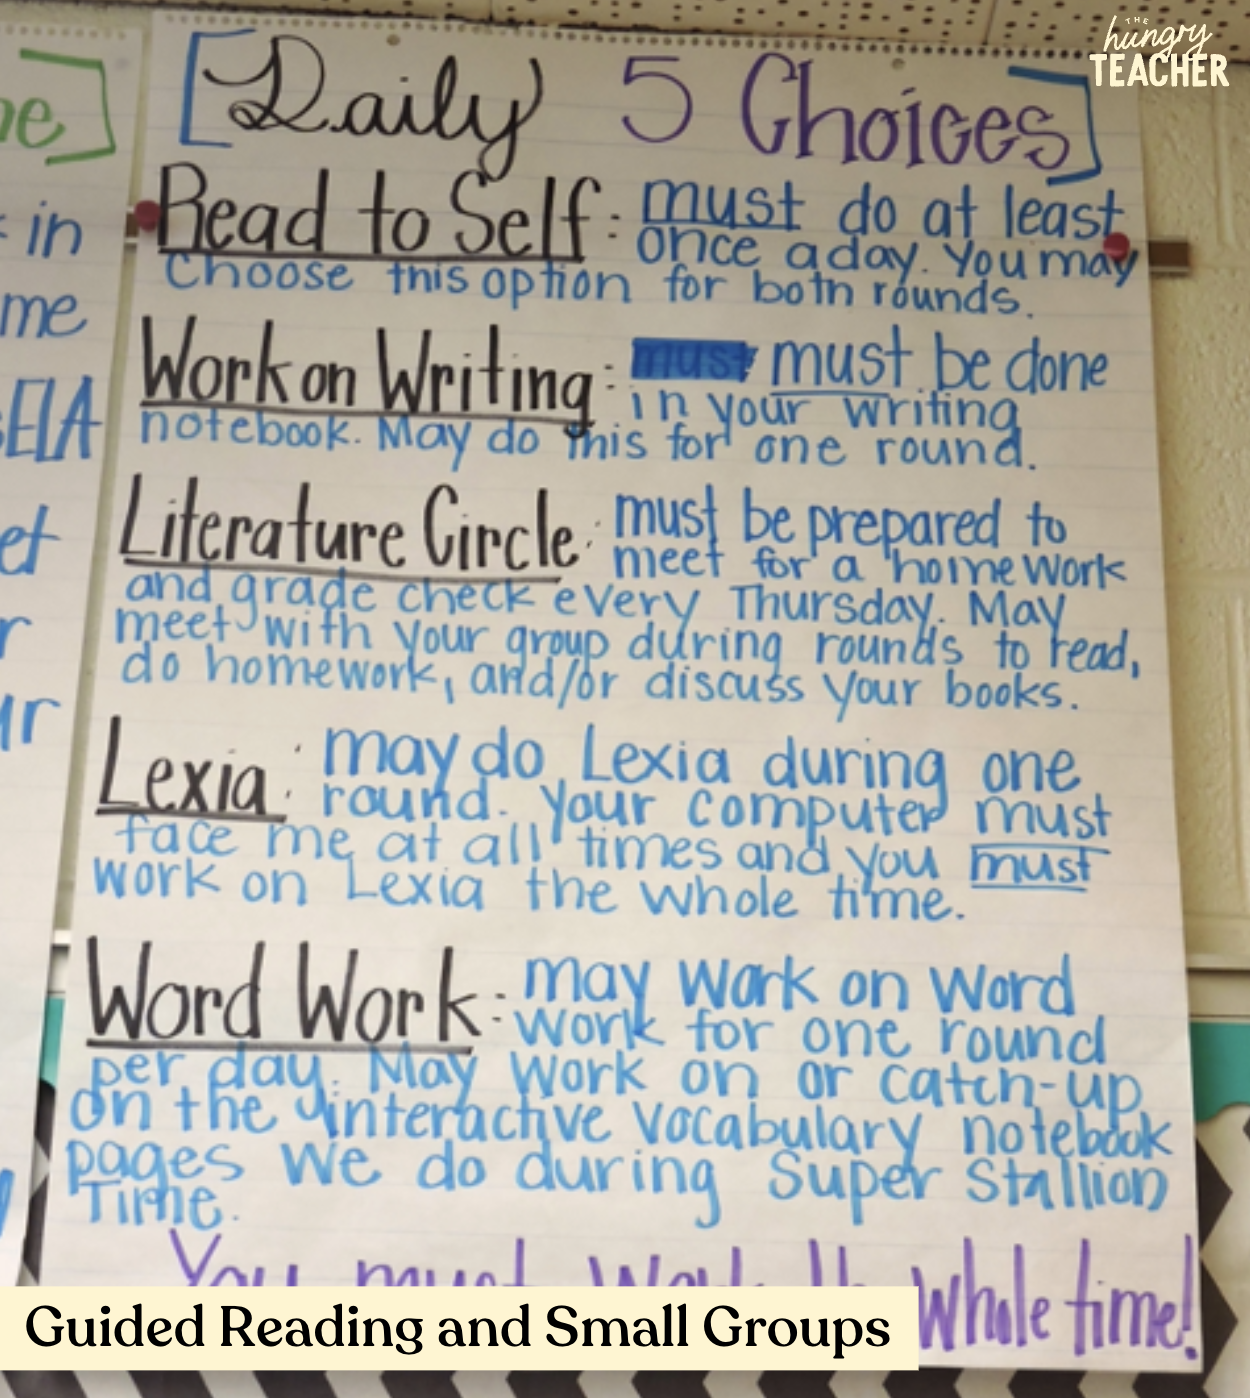 THE
hungry
TEACHER
[Daily 5 Choices]
Read to Self: must do at least
once a day. You may
choose this option for both rounds.
Work on Writing: must must be done
in your writing
notebook. May do this for one round.
Literature Circle: must be prepared to
meet for a homework
and grade check every Thursday. May
meet with your group during rounds to read,
do homework, and/or discuss your books.
Lexia: may do Lexia during one
round. Your computer must
face me at all times and you must
work on Lexia the whole time.
Word Work: may work on word
work for one round
per day. May work on or catch-up
on the interactive vocabulary notebook
pages we do during Super Stallion
Time.
You must work the whole time!
in
me
ELA
et
r
ur
Guided Reading and Small Groups